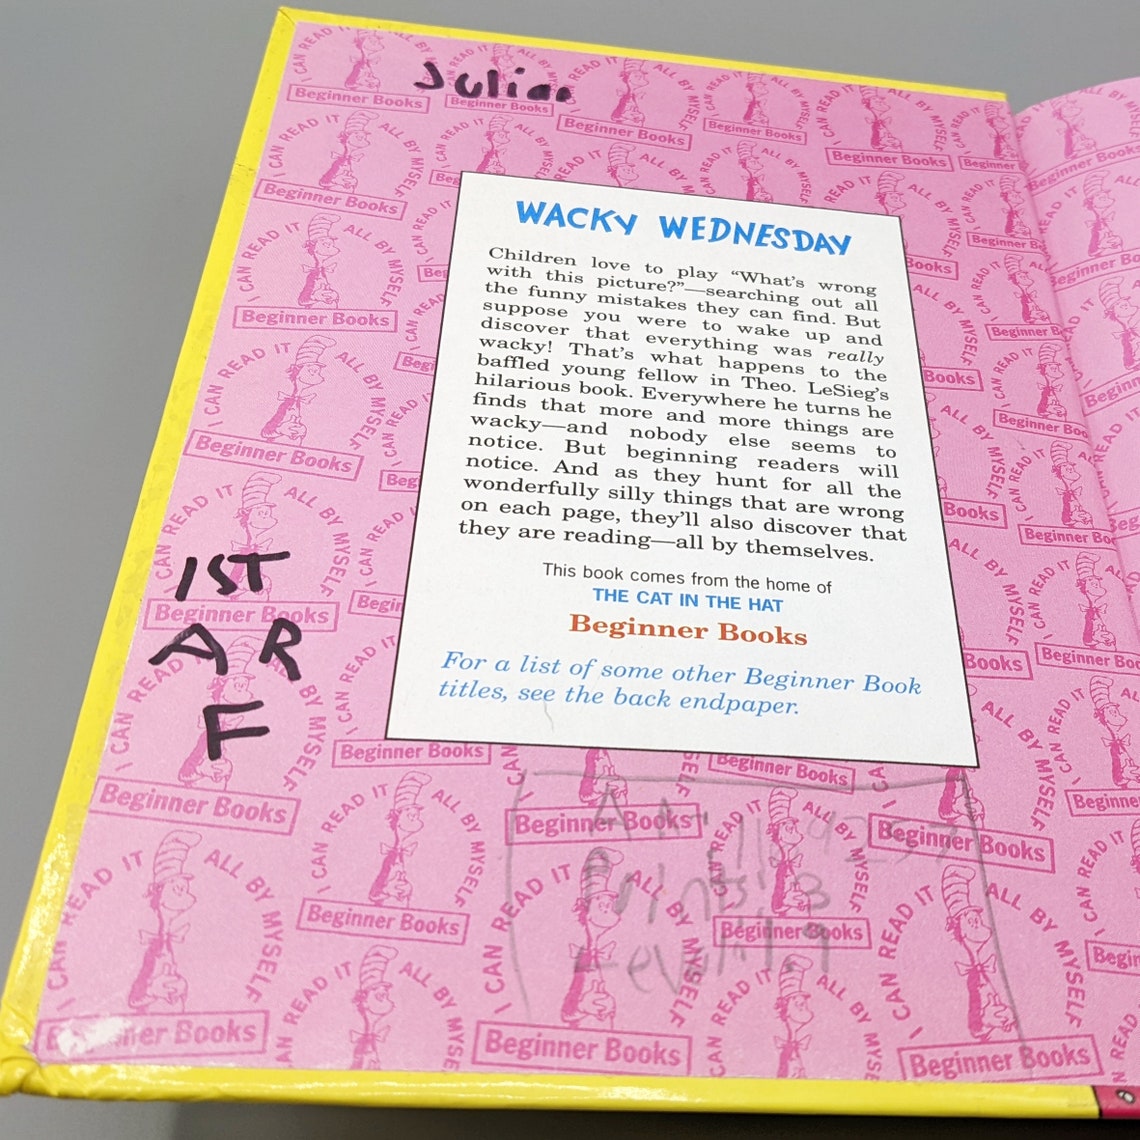 Julian
WACKY WEDNESDAY
Children love to play “What’s wrong
with this picture?”—searching out all
the funny mistakes they can find. But
suppose you were to wake up and
discover that everything was really
wacky! That’s what happens to the
baffled young fellow in Theo. LeSieg’s
hilarious book. Everywhere he turns he
finds that more and more things are
wacky—and nobody else seems to
notice. But beginning readers will
notice. And as they hunt for all the
wonderfully silly things that are wrong
on each page, they’ll also discover that
they are reading—all by themselves.
This book comes from the home of
THE CAT IN THE HAT
Beginner Books
For a list of some other Beginner Book
titles, see the back endpaper.
1ST
A R
F
I CAN READ IT ALL BY MYSELF
Beginner Books